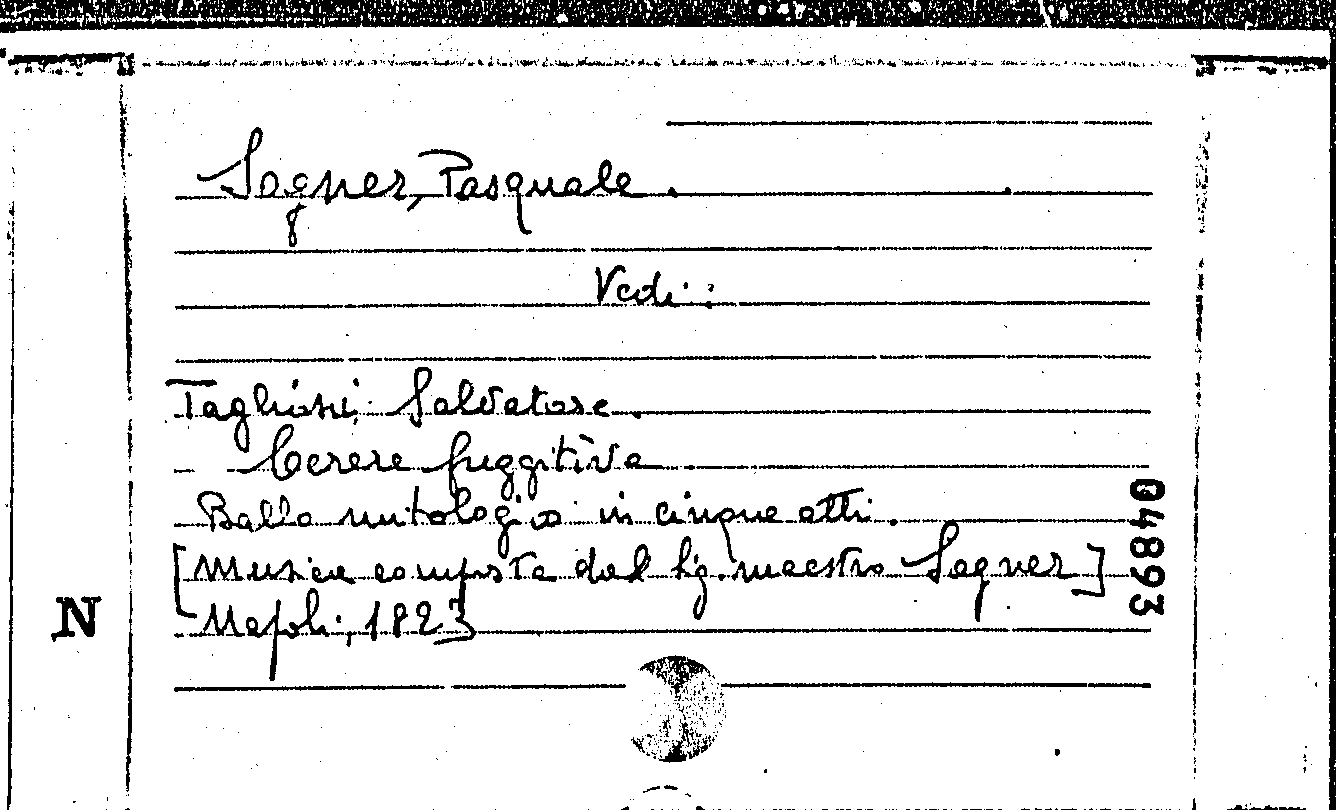 Sogner, Pasquale.
Vedi:
Taglioni Salvatore.
- Cerere fuggitiva
Ballo mitologico in cinque atti.
[Musica composta dal sig. maestro Sogner]
Napoli, 1823
04893
N